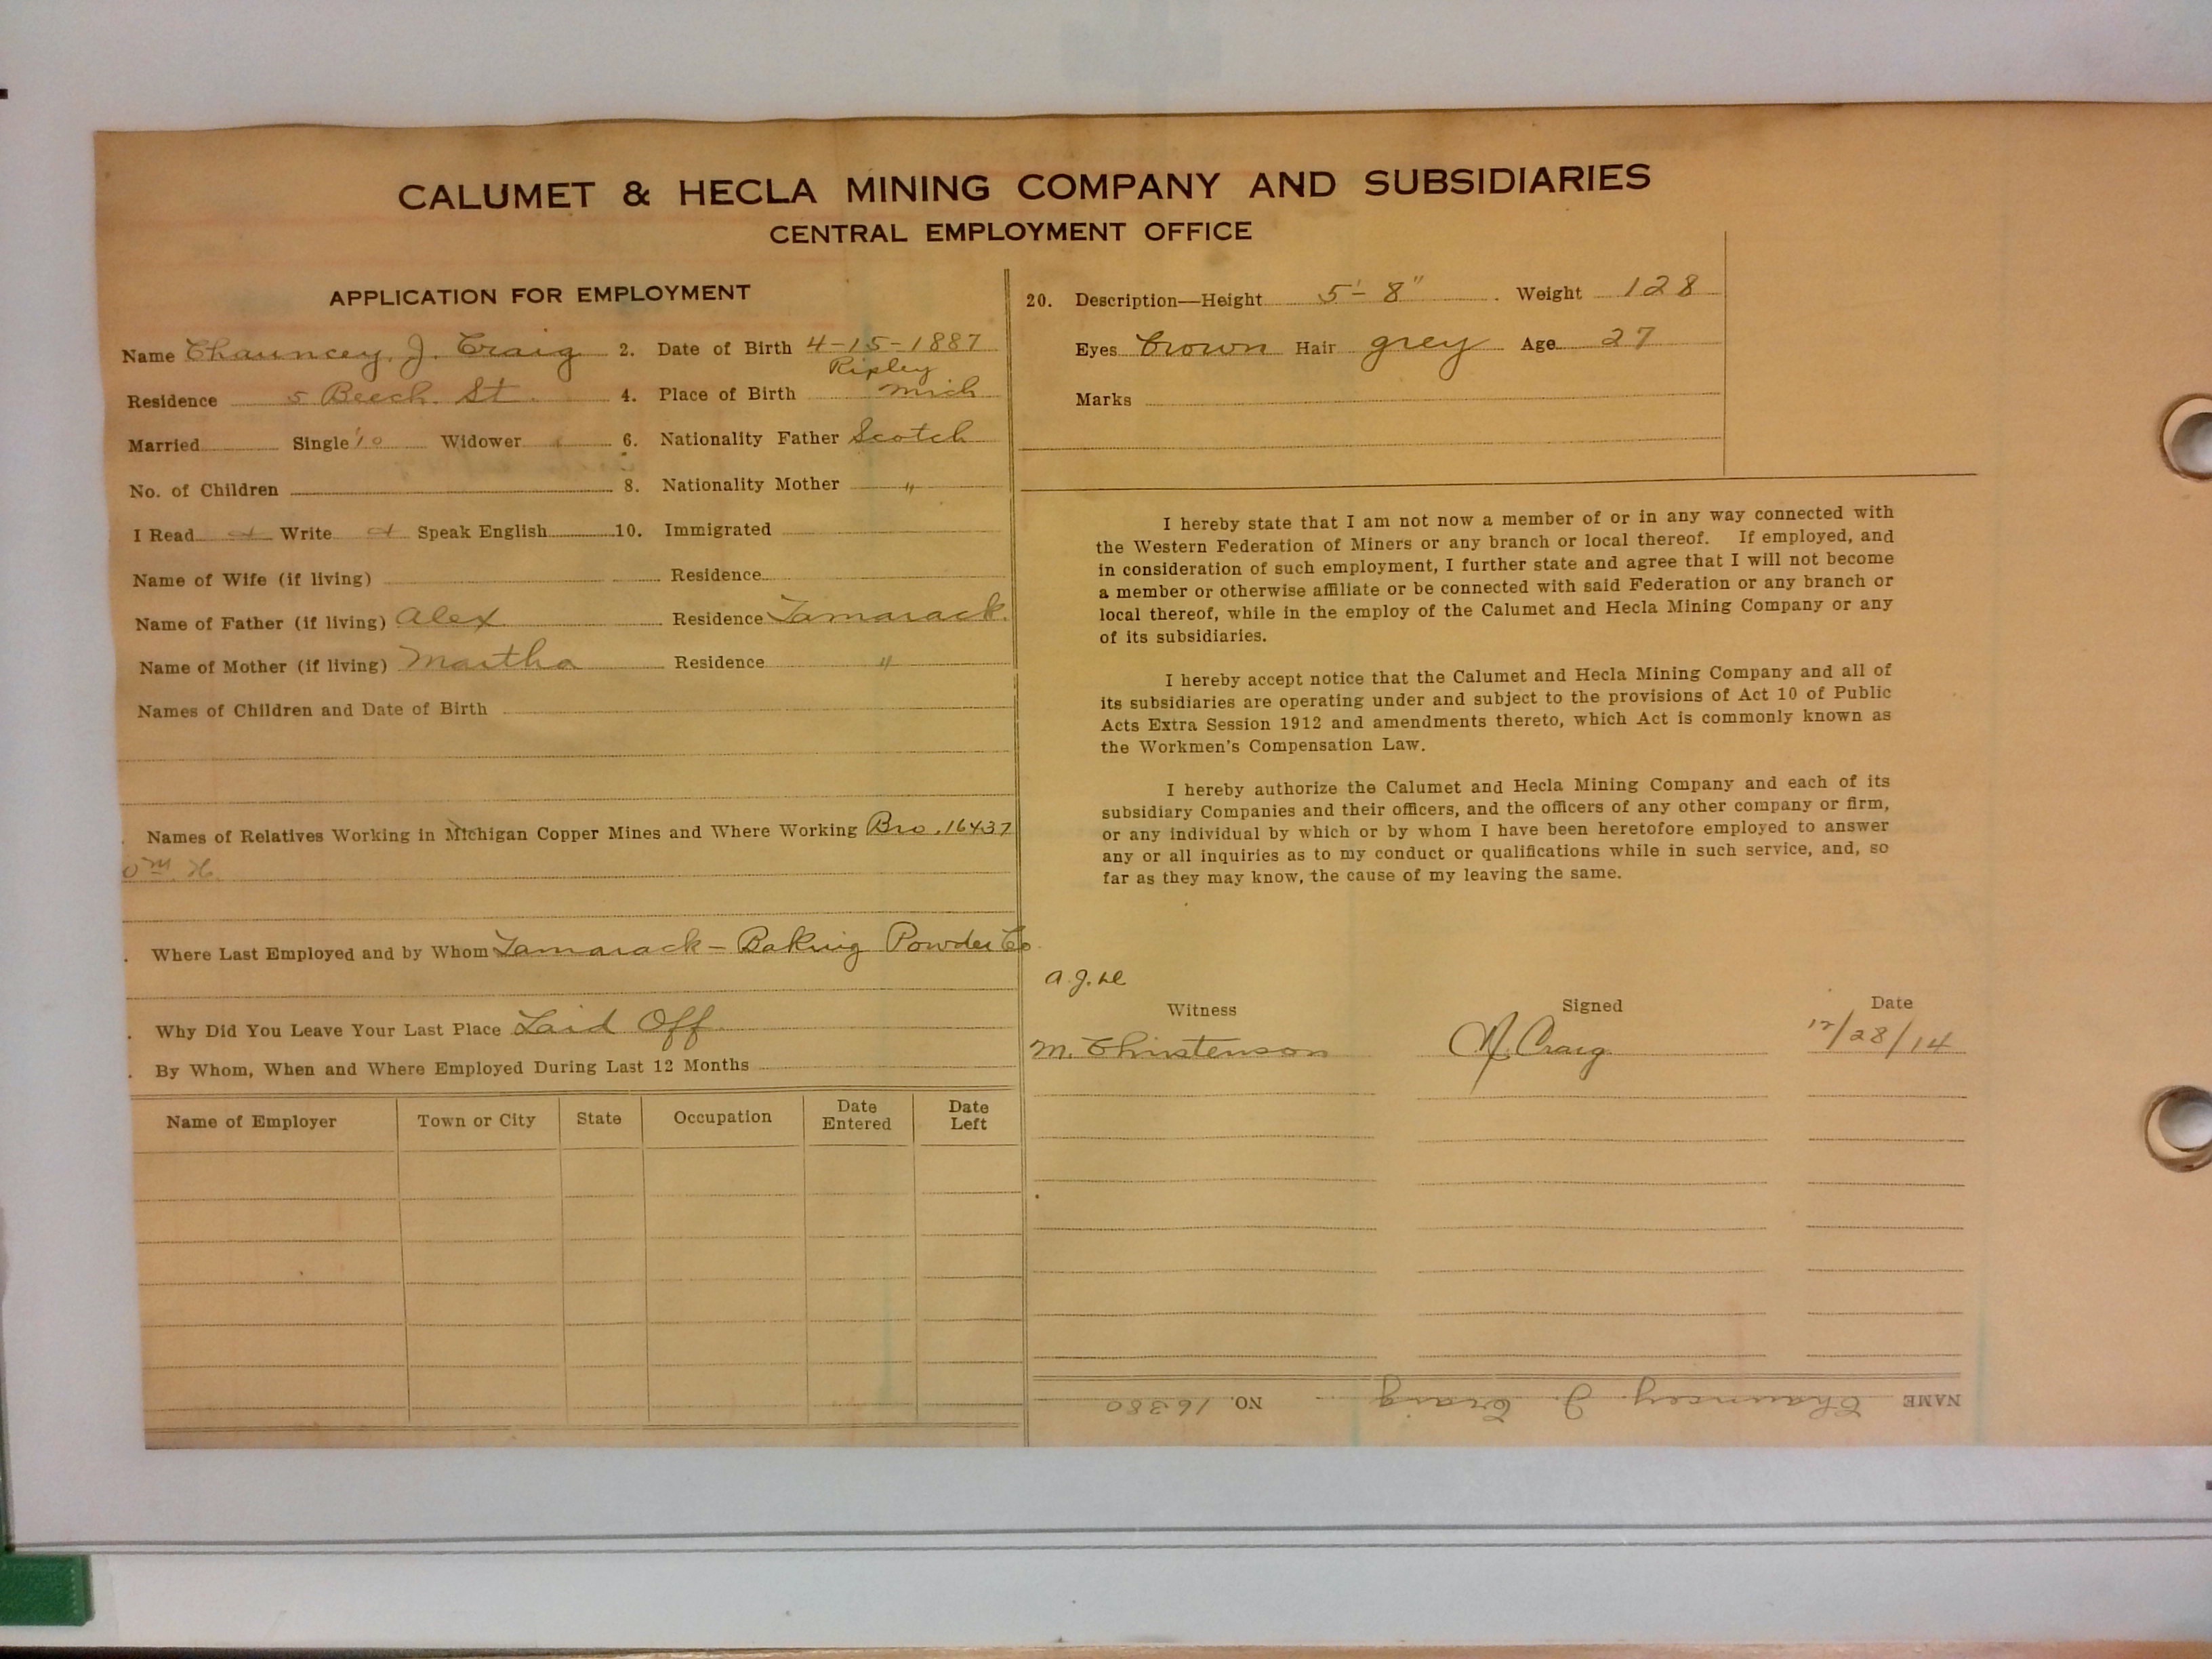 CALUMET & HECLA MINING COMPANY AND SUBSIDIARIES
CENTRAL EMPLOYMENT OFFICE
APPLICATION FOR EMPLOYMENT
Name Chauncey. J. Craig 2. Date of Birth 4-15-1887
Residence 5 Beech. St. 4. Place of Birth Ripley Mich
Married Single Widower 6. Nationality Father Scotch
No. of Children 8. Nationality Mother "
I Read Write Speak English 10. Immigrated
Name of Wife (if living) Residence
Name of Father (if living) Alex Residence Tamarack.
Name of Mother (if living) Martha Residence "
Names of Children and Date of Birth
Names of Relatives Working in Michigan Copper Mines and Where Working Bro. 16437
Wm. H.
Where Last Employed and by Whom Tamarack - Baking Powder Co
Why Did You Leave Your Last Place Laid Off
By Whom, When and Where Employed During Last 12 Months
Name of Employer Town or City State Occupation Date Entered Date Left
20. Description—Height 5'- 8" . Weight 128
Eyes brown Hair grey Age 27
Marks
I hereby state that I am not now a member of or in any way connected with
the Western Federation of Miners or any branch or local thereof. If employed, and
in consideration of such employment, I further state and agree that I will not become
a member or otherwise affiliate or be connected with said Federation or any branch or
local thereof, while in the employ of the Calumet and Hecla Mining Company or any
of its subsidiaries.
I hereby accept notice that the Calumet and Hecla Mining Company and all of
its subsidiaries are operating under and subject to the provisions of Act 10 of Public
Acts Extra Session 1912 and amendments thereto, which Act is commonly known as
the Workmen's Compensation Law.
I hereby authorize the Calumet and Hecla Mining Company and each of its
subsidiary Companies and their officers, and the officers of any other company or firm,
or any individual by which or by whom I have been heretofore employed to answer
any or all inquiries as to my conduct or qualifications while in such service, and, so
far as they may know, the cause of my leaving the same.
Witness Signed Date
M. Christenson Craig 12/28/14
NAME Chauncey. J. Craig NO. 16380